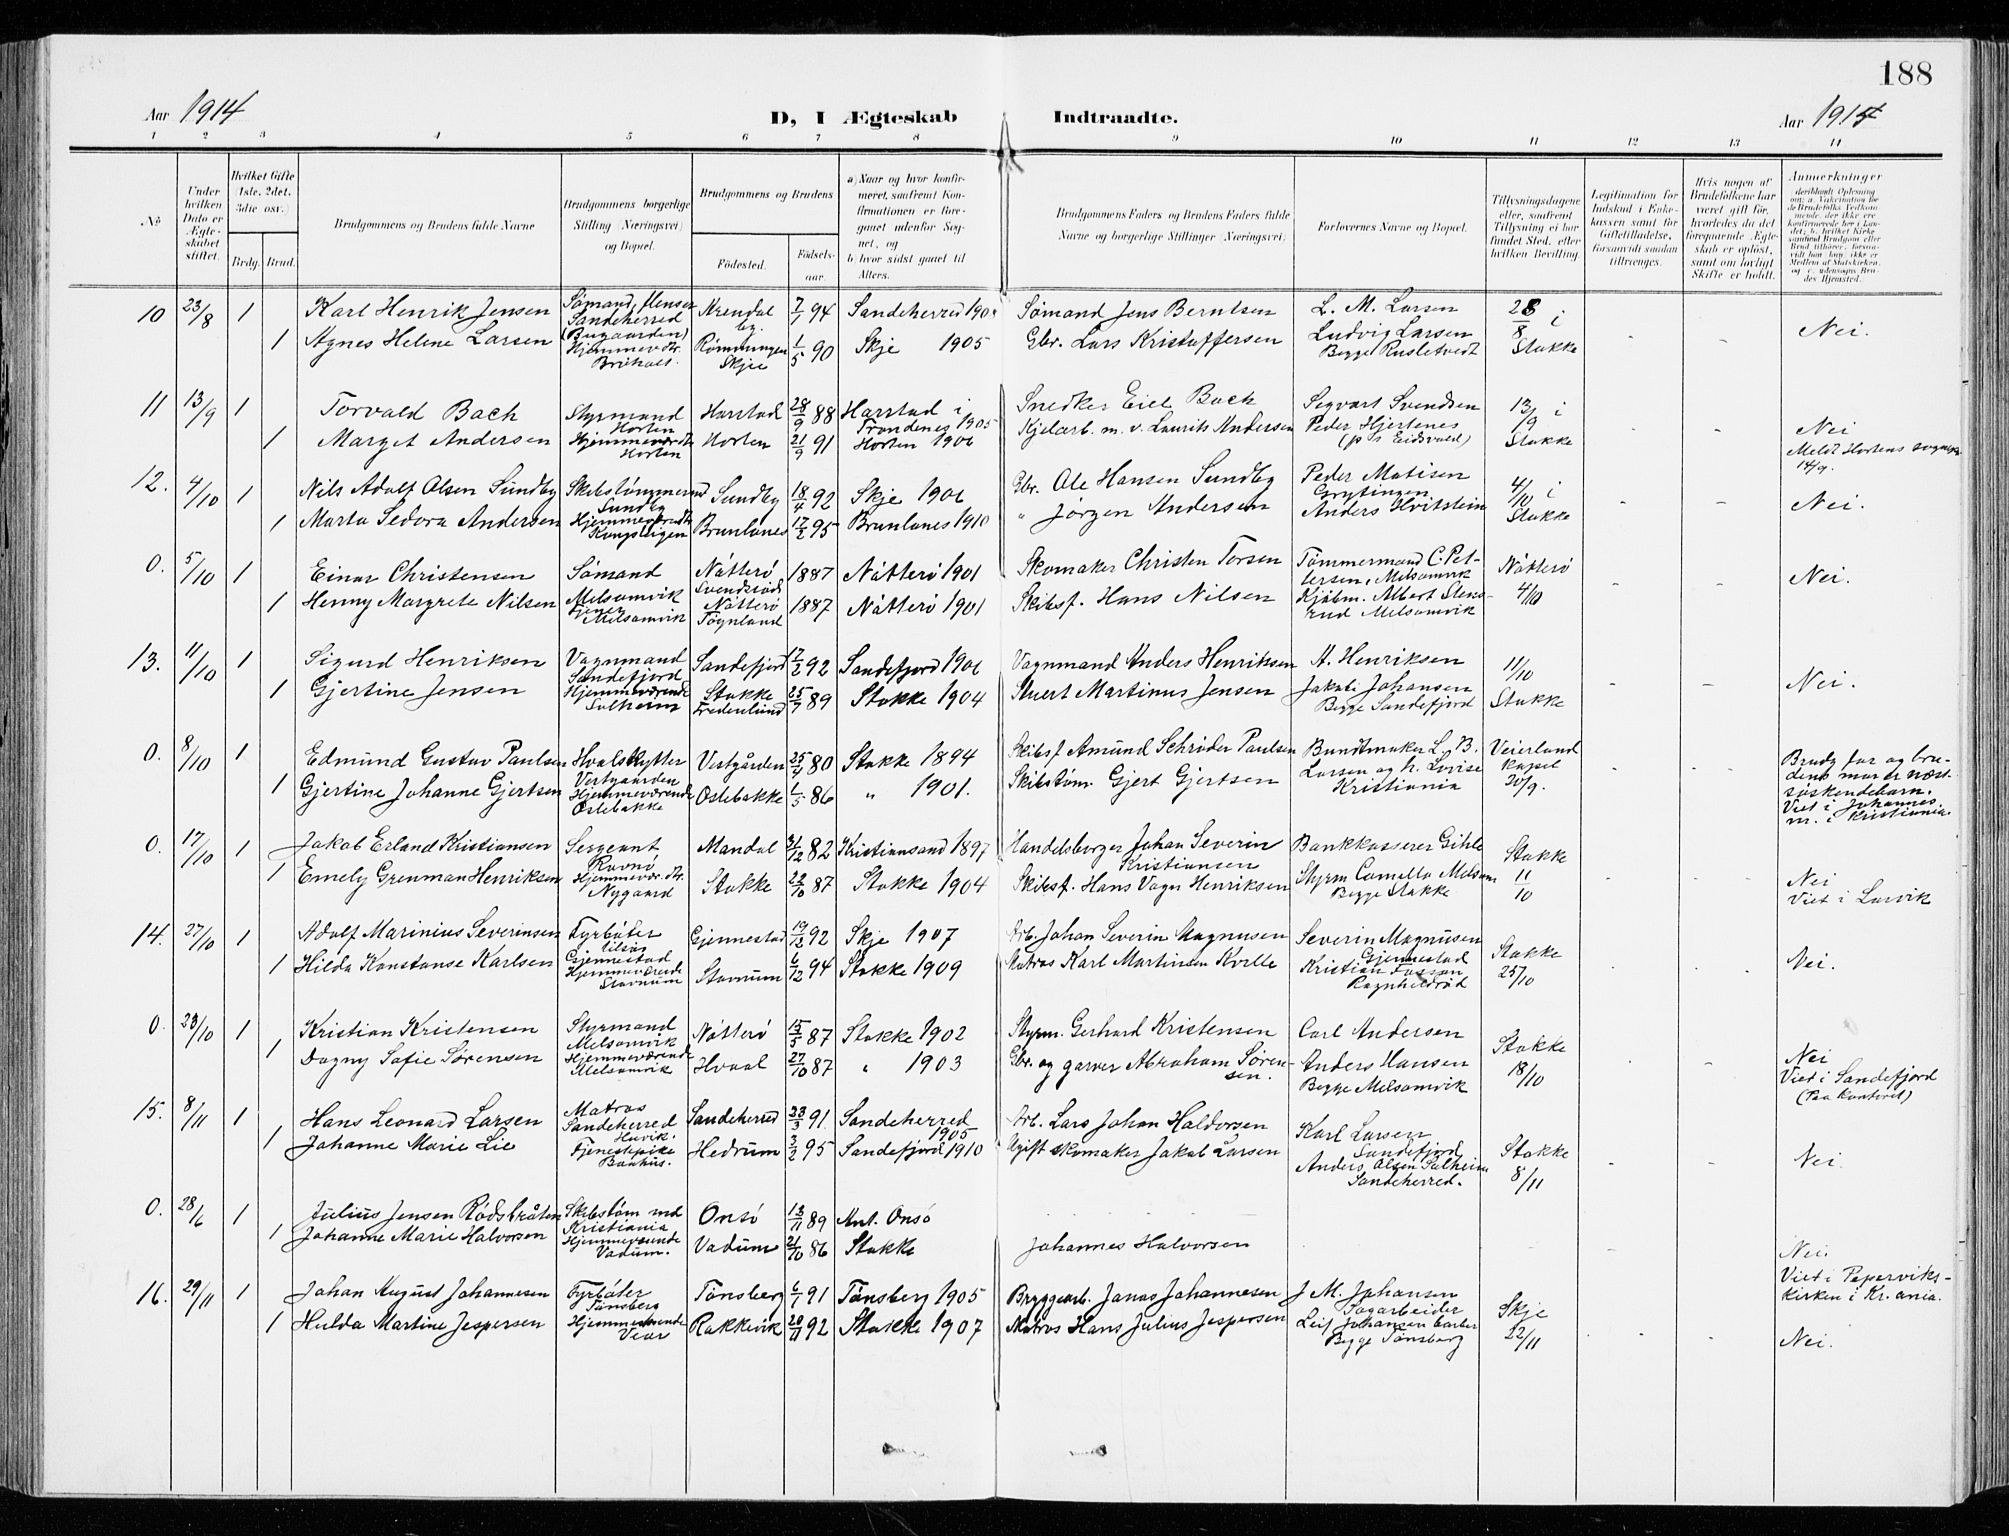 188
Aar 1914
D, I Ægteskab Indtraadte.
Aar 1914
1 2 3 4 5 6 7 8 9 10 11 12 13 14
No
Under hvilken Dato er Ægteskabet stiftet.
Hvilket Gifte (1ste, 2det, 3die osv.)
Brdg. Brud.
Brudgommens og Brudens fulde Navne
Brudgommens borgerlige Stilling (Næringsvei) og Bopæl.
Brudgommens og Brudens
Fødested.
Fødselsaar.
a) Naar og hvor konfirmeret, saafremt Konfirmationen er foregaaet udenfor Sognet, og
b) hvor sidst gaaet til Alters.
Brudgommens Faders og Brudens Faders fulde Navne og borgerlige Stillinger (Næringsvei)
Forlovernes Navne og Bopæl.
Tillysningsdagene eller, saafremt Tillysning ei har fundet Sted, efter hvilken Bevilling.
Legitimation for Indskud i Enkekassen samt for Giftetilladelse, forsaavidt saadan tiltrænges.
Hvis nogen af Brudefolkene har været gift før, hvorledes da det foregaaende Ægteskab er opløst, samt om lovligt Skifte er holdt.
Anmerkninger
10 23/8 1 Karl Henrik Jensen Sømand, Sandeherred (Bugaarden) Arendal by. 7/1 94 Sandeherred Sømand Jens Berntsen L. M. Larsen 23/8 i
1 Agnes Helene Larsen Hjemmevdr. Rømmingen Skje 1/5 90 Skje 1905 Gbr. Lars Kristoffersen Ludvig Larsen Begge Rusletvedt Stokke Nei.
11 13/9 1 Torvald Bach Styrmand Horten Harstad 28/9 88 Harstad i Trondenes 1905 Snedker Eiel Bach Segvart Svendsen 13/9 i
1 Marget Andersen Hjemmeværdr. Horten Horten 21/9 91 Horten 1906 Kjelarb. m. v. Laurits Andersen Peder Hjertenes (p s Eidsvold) Stokke Nei Meldt Hortens sognepr. 14/9.
12. 4/10 1 Nils Adolf Olsen Sundby Skibstømmermd Sundby Sundby 18/4 92 Skje 1906 Gbr. Ole Hansen Sundby Peder Matisen Grytingen 4/10 i
1 Marta Sedora Andersen Hjemmeværdr. Brunlanes 17/2 95 Brunlanes 1910 " Jørgen Andersen Anders Hvitstein Stokke Nei.
0. 5/10 1 Einar Christensen Sømand Melsomvik Nötterö Svendsröd 1887 Nötterö 1901 Skomaker Christen Torsen Tömmermand C. Pettersen, Melsomvik Nötterö
1 Henny Margrete Nilsen Tjener Melsomvik Nötterö Tognland 1887 Nötterö 1901 Skibsf. Hans Nilsen Kjöbm. Albert Stensrud Melsomvik 4/10 Nei.
13. 11/10 1 Sigurd Henriksen Vognmand Sandefjord Sandefjord 17/2 92 Sandefjord 1906 Vognmand Anders Henriksen A. Henriksen 11/10
1 Gjertine Jensen Hjemmeværende Solheim Stokke Fredenlund 25/7 89 Stokke 1904 Stuert Martinus Jensen Jakob Johansen Begge Sandefjord Stokke Nei.
0. 8/10 1 Edmund Gustav Paulsen Hvalskytter Vestgaarden Vestgården 25/4 80 Stokke 1894 Skibsf Amund Schröder Paulsen Bundtmaker L. B. Veierland kapel
1 Gjertine Johanne Gjertsen Hjemmeværende Oslebakke Oslebakke 1/5 86 " 1901. Skibstøm. Gjert Gjertsen Larsen og h. Lovise Kristiania 20/9. Brudg far og brudens mor er næstsöskendebarn. Viet i Johannes m. i Kristiania.
0. 17/10 1 Jakob Erland Kristiansen Sergeant Ravnö Mandal 31/12 82 Kristiansand 1897 Handelsborger Johan Severin Kristiansen Bankkasserer Gihle Stokke
1 Emely Grenman Henriksen Hjemmevær.dr. Nygaard Stokke 22/10 87 Stokke 1904 Skibsf. Hans Vagn Henriksen Styrm Camillo Melsom Begge Stokke 11/10 Nei Viet i Larvik
14. 27/10 1 Adolf Marinius Severinsen Fyrböter Gjennestad Gjennestad 19/12 92 Skje 1907 Arb. Johan Severin Magnusen Severin Magnusen Gjennestad Stokke
1 Hilda Konstanse Karlsen Hjemmeværende Stavnum Stavnum 6/12 94 Stokke 1909 Matros Karl Martinsen Kverlle Kristian Ragnhildröd 25/10 Nei.
0. 23/10 1 Kristian Kristensen Styrmand Melsomvik Nötterö 15/5 87 Stokke 1902 Styrm. Gerhard Kristensen Carl Andersen Stokke
1 Dagny Sofie Sørensen Hjemmeværende Melsomvik Hvaal 27/10 87 " 1903 Gbr. og garver Abraham Sørensen. Anders Hansen Begge Melsomvik 18/10 Nei Viet i Sandefjord (Paa kontoret)
15. 8/11 1 Hans Leonard Larsen Matros Sandeherred Sandeherred 23/3 91 Sandeherred 1905 Arb. Lars Johan Haldorsen Karl Larsen Sandefjord Stokke
1 Johanne Marie Lie Tjenestpike Hedrum 3/2 95 Sandefjord 1910 Ugift skomaker Jakob Larsen Anders Olsen Solheim Sandeherred. 8/11 Nei.
0. 28/6 1 Julius Jensen Rödsbråten Skibstöm md Kristiania Onsö 13/11 89 Ant. Onsö
1 Johanne Marie Halvorsen Hjemmeværende Vadum. Vadum 21/10 86 Stokke Johannes Halvorsen Nei. Viet i Peperviks-kirken i Kr.ania.
16. 29/11 1 Johan August Johannesen Fyrböter Tönsberg Tönsberg 6/1 91 Tönsberg 1905 Bryggearb. Jonas Johannesen J M. Johansen Sagarbeider Skje
1 Hulda Martine Jespersen Hjemmeværende Vear Rakkevik 20/11 92 Stokke 1907 Matros Hans Julius Jespersen Leif Johansen barber Begge Tönsberg 22/11 Nei.